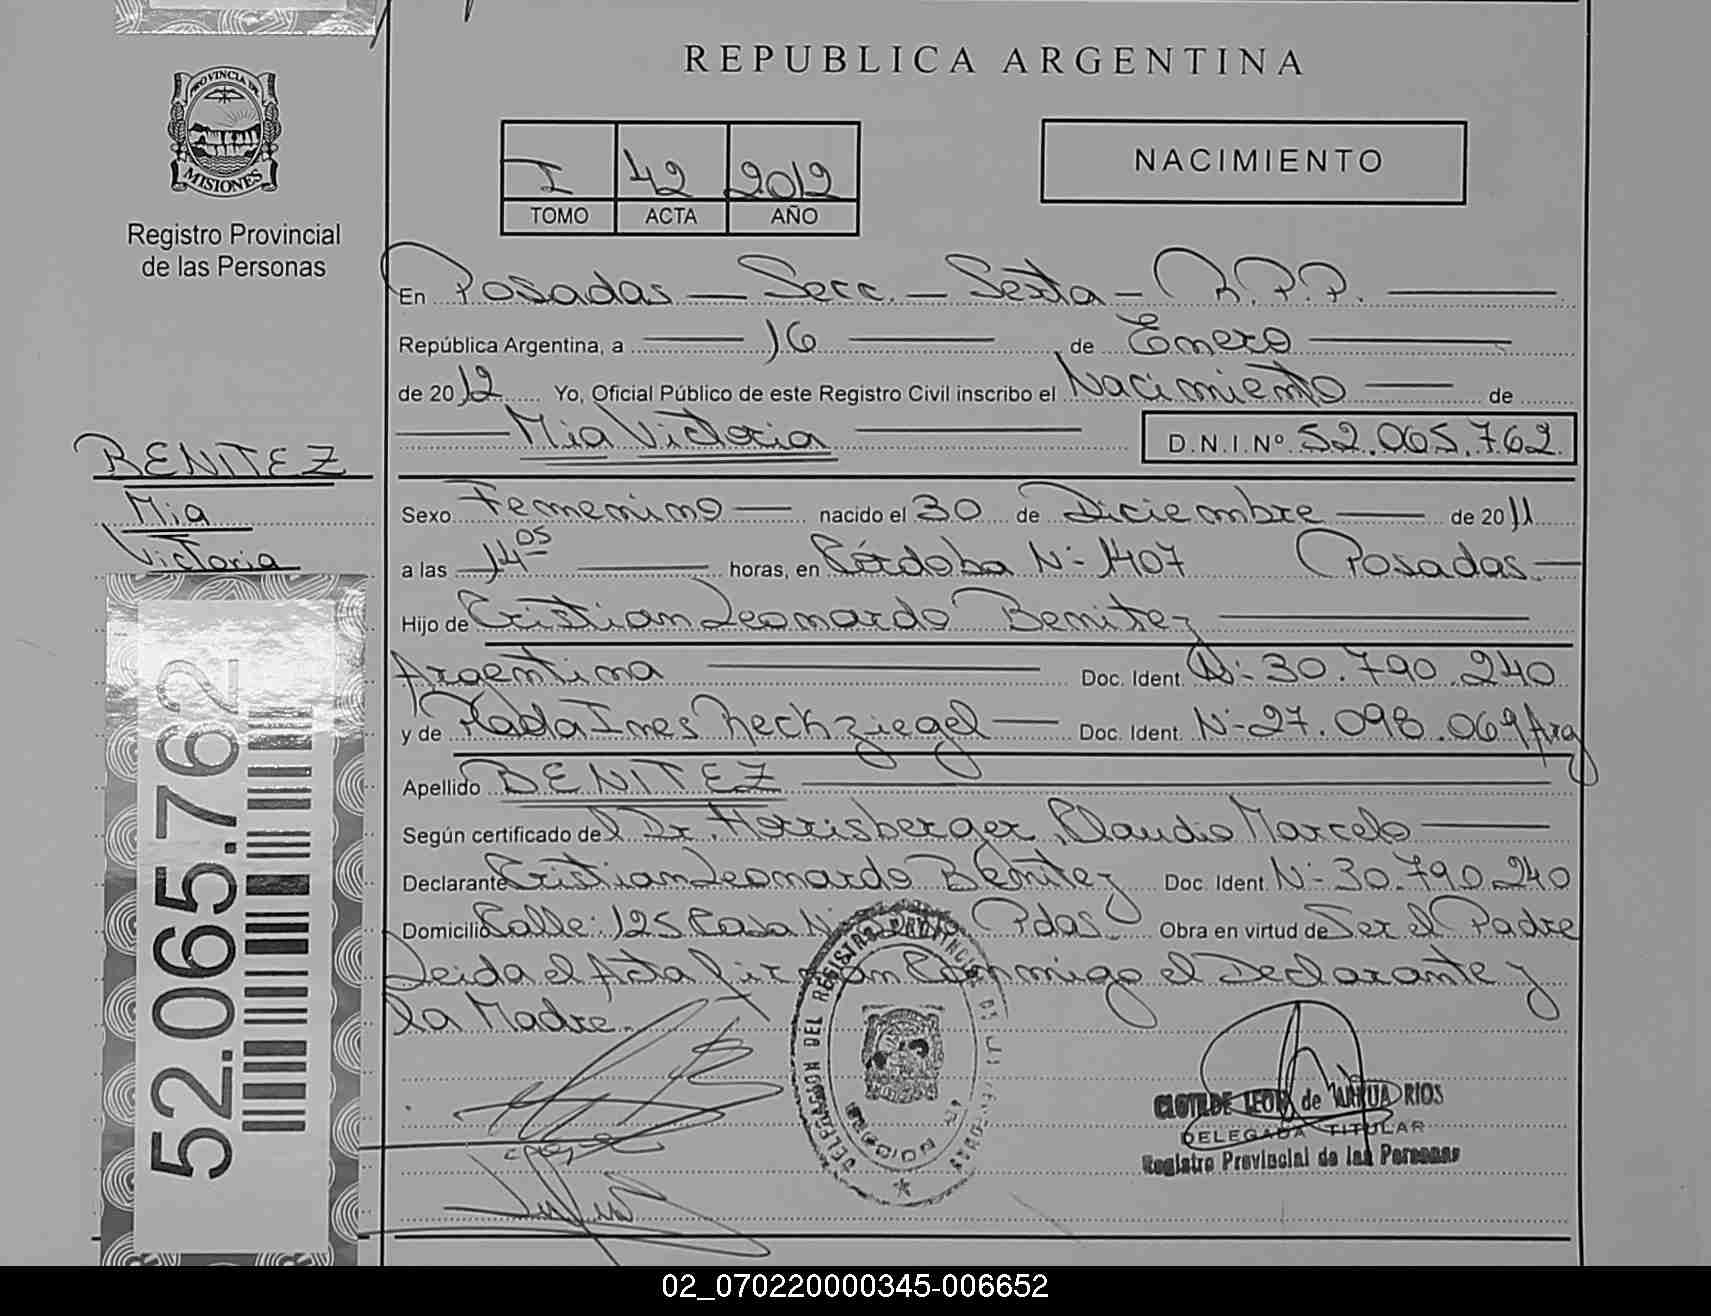 REPUBLICA ARGENTINA
PROVINCIA DE
MISIONES
Registro Provincial
de las Personas
I 42 2012
TOMO ACTA AÑO
NACIMIENTO
En Posadas — Secc. — Sexta — R.P.P.
República Argentina, a 16 de Enero
de 2012 Yo, Oficial Público de este Registro Civil inscribo el Nacimiento de
Mia Victoria D.N.I. Nº 52.065.762
BENITEZ
Mia
Victoria
Sexo Femenino nacido el 30 de Diciembre de 2011
a las 14 05 horas, en Córdoba Nº 1407 Posadas
Hijo de Cristian Leonardo Benitez
Argentina Doc. Ident. Nº 30.790.240
y de Ines Rechziegel Doc. Ident. Nº 27.098.069 Arg
Apellido BENITEZ
Según certificado del Dr. Horrisberger, Claudio Marcelo
Declarante Cristian Leonardo Benitez Doc. Ident. Nº 30.790.240
Domicilio Calle: 125 Casa Pdas. Obra en virtud de Ser el Padre
Leida el Acta firman Conmigo el Declarante y
la Madre.
52.065.762
DELEGACION DEL REGISTRO PROVINCIAL DE LAS PERSONAS
CLOTILDE de RIOS
DELEGADA TITULAR
Registro Provincial de las Personas
02_070220000345-006652